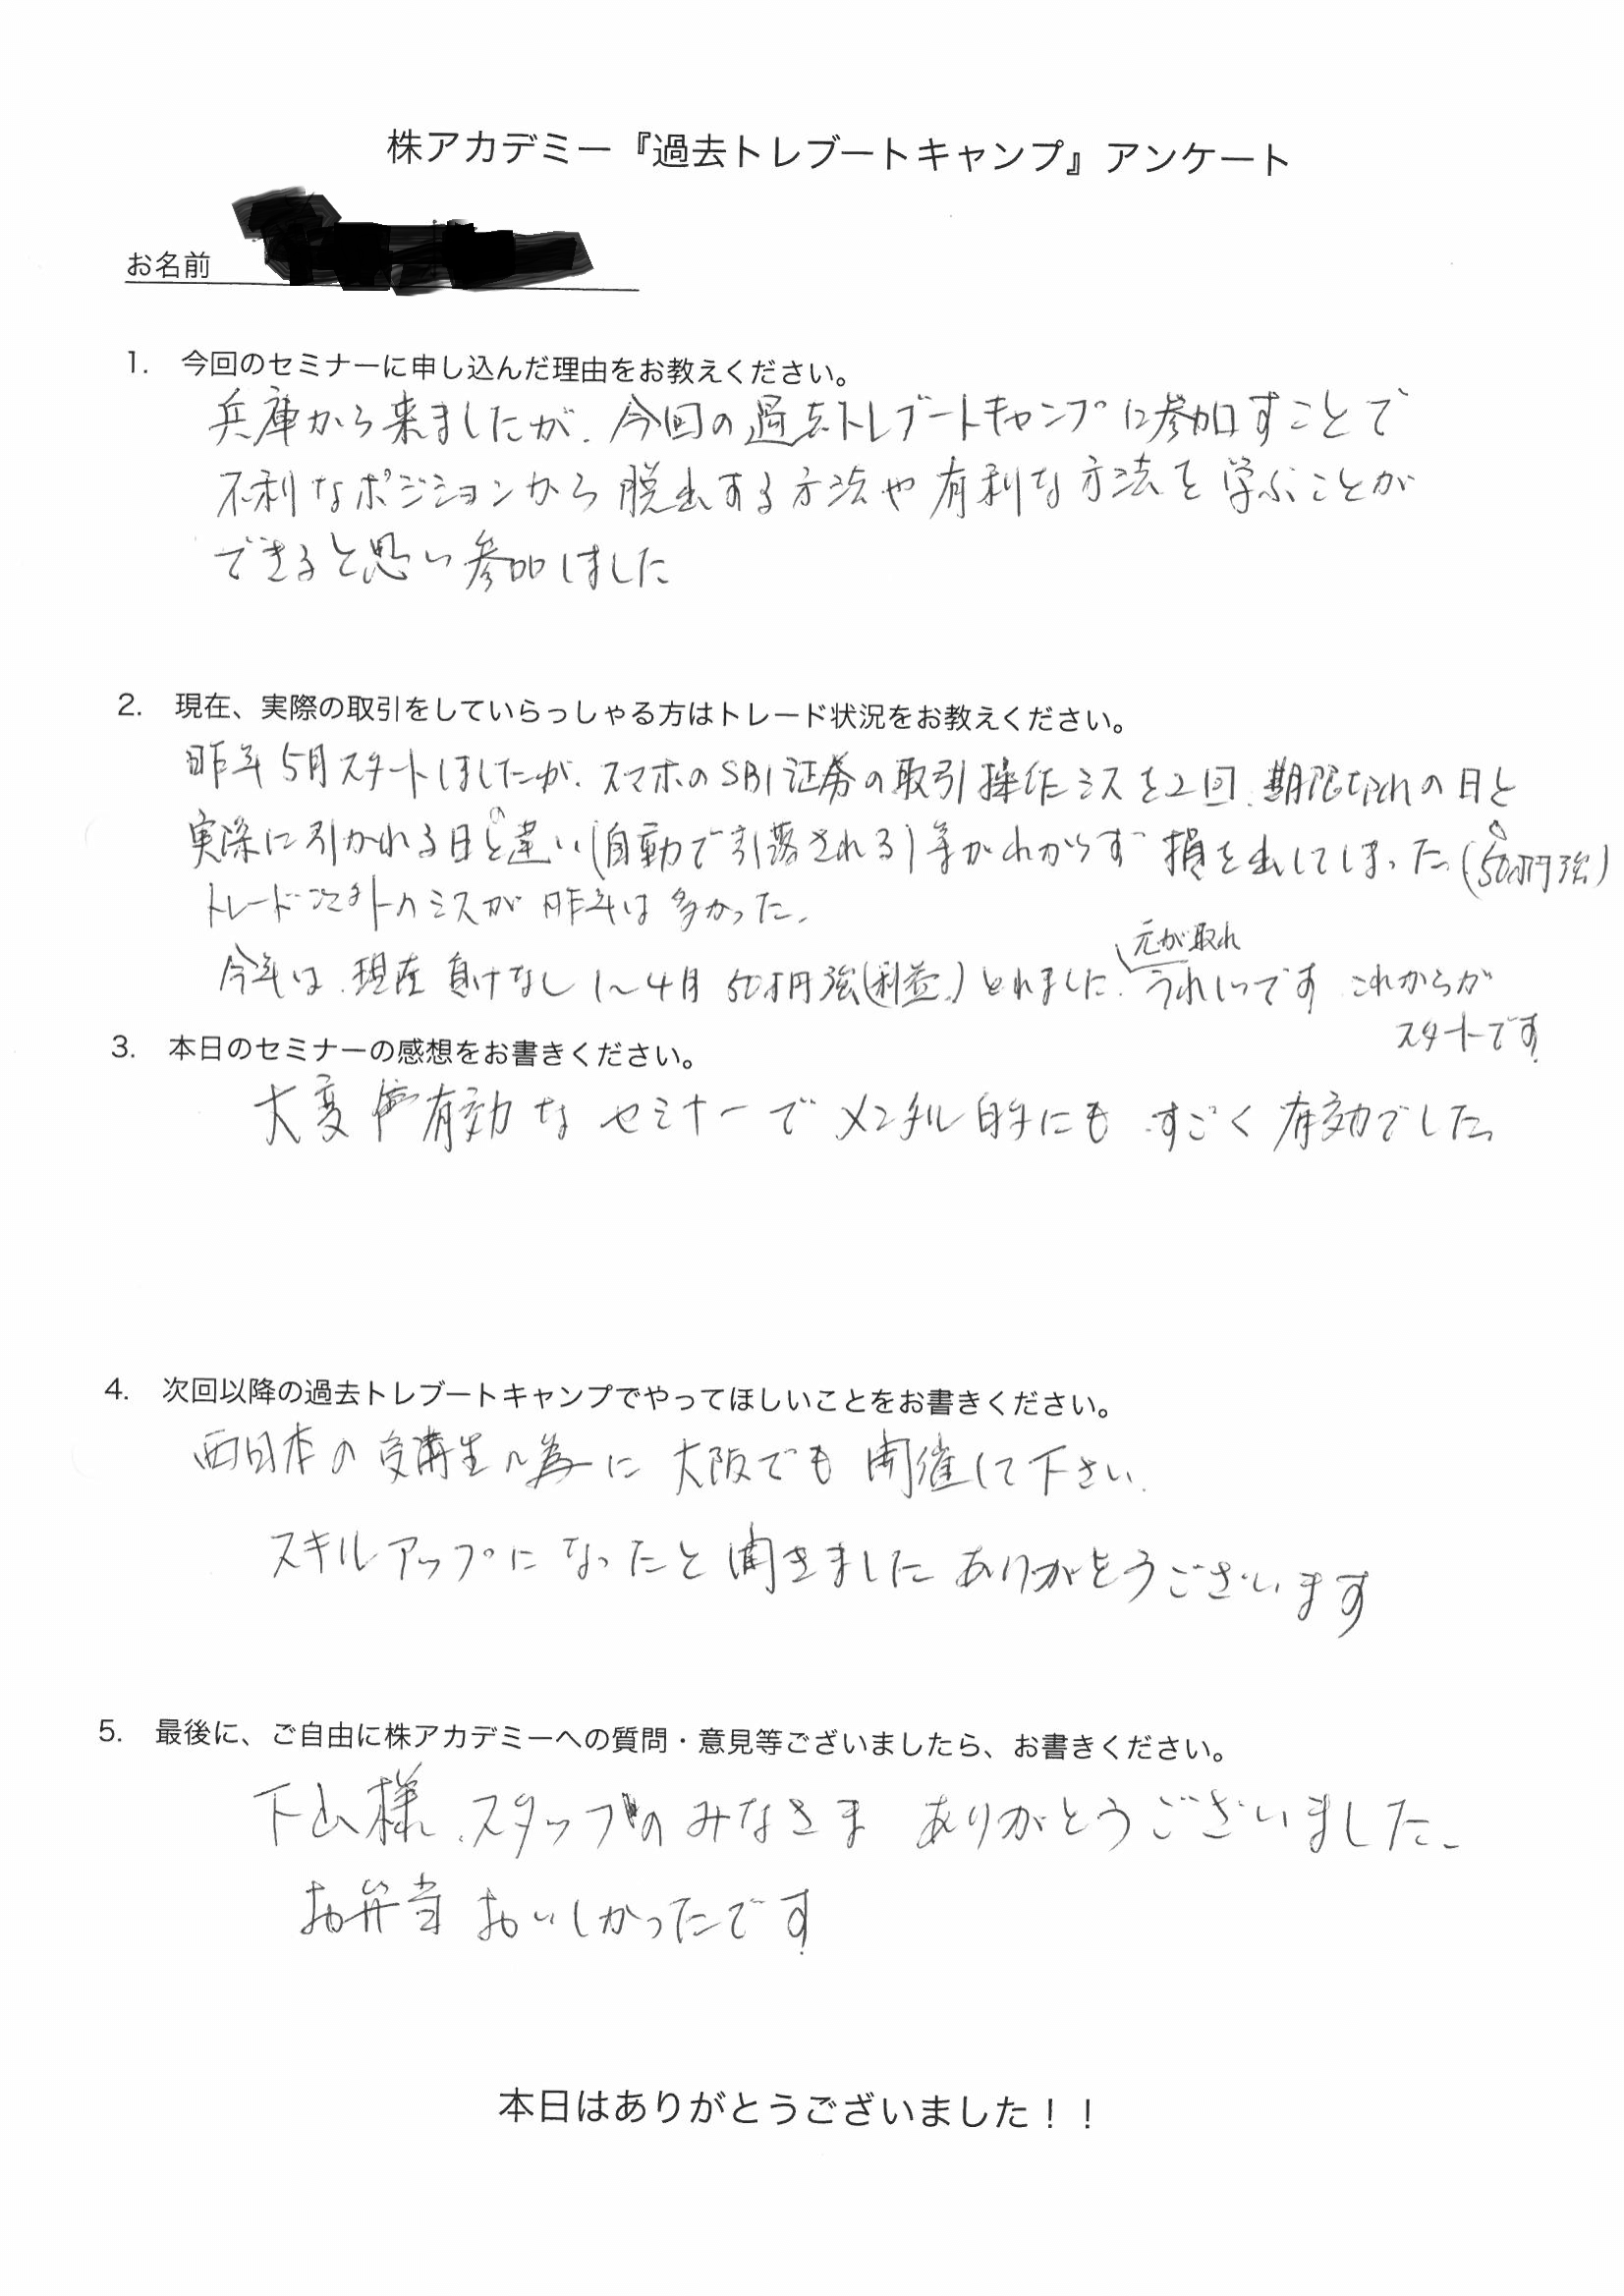 株アカデミー『過去トレブートキャンプ』アンケート
お名前
1. 今回のセミナーに申し込んだ理由をお教えください。
兵庫から来ましたが、今回の過去トレブートキャンプに参加すことで
不利なポジションから脱出する方法や有利な方法を学ぶことが
できると思い参加しました
2. 現在、実際の取引をしていらっしゃる方はトレード状況をお教えください。
昨年5月スタートしましたが、スマホのSBI証券の取引操作ミスを2回、期限切れの日と
実際に引かれる日との違い(自動で引落される)等がわからず損を出してしまった。(50万円強)
トレード以外のミスが昨年は多かった。
元が取れ
今年は、現在負けなし1〜4月50万円強(利益)とれました。うれしいです これからが
スタートです
3. 本日のセミナーの感想をお書きください。
大変有効なセミナーでメンタル的にもすごく有効でした。
4. 次回以降の過去トレブートキャンプでやってほしいことをお書きください。
西日本の受講生の為に大阪でも開催して下さい。
スキルアップになったと聞きました ありがとうございます
5. 最後に、ご自由に株アカデミーへの質問・意見等ございましたら、お書きください。
下山様、スタッフのみなさま ありがとうございました。
お弁当おいしかったです
本日はありがとうございました！！